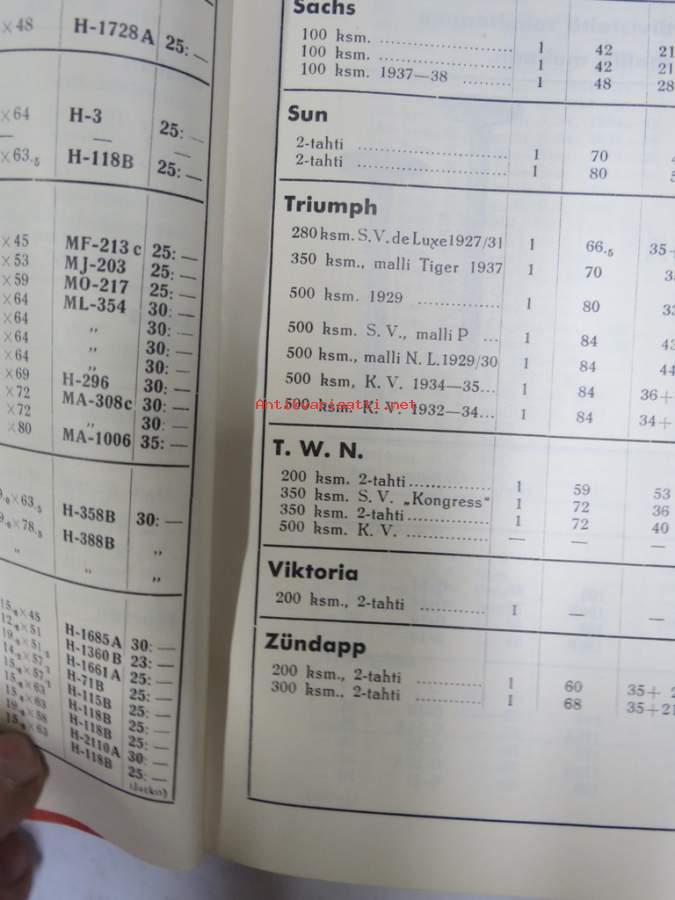 ×48 H-1728 A 25: —
×64 H-3 25: —
— — —
×63.₅ H-118B 25: —
×45 MF-213 c 25: —
×53 MJ-203 25: —
×59 MO-217 25: —
×64 ML-354 30: —
×64 „ 30: —
×64 „ 30: —
×64 „ 30: —
×69 H-296 30: —
×72 MA-308c 30: —
×72 „ 30: —
×80 MA-1006 35: —
×63.₅ H-358B 30: —
×78.₅ H-388B „
„ „ „
×45 H-1685 A 30: —
×51 H-1360 B 23: —
×51 H-1661 A 25: —
H-71B 25: —
H-115B 25: —
×63 H-118B 25: —
×63 H-118B 25: —
×58 H-2110A 30: —
×63 H-118B 25: —
(Jatko)
Sachs
100 ksm. 1 42 21
100 ksm. 1 42 21
100 ksm. 1937—38 1 48 28
Sun
2-tahti 1 70
2-tahti 1 80
Triumph
280 ksm. S. V. de Luxe 1927/31 1 66.₅ 35+
350 ksm., malli Tiger 1937 1 70
500 ksm. 1929 1 80 33
500 ksm. S. V., malli P ... 1 84 43
500 ksm., malli N. L. 1929/30 1 84 44
500 ksm, K. V. 1934—35... 1 84 36+
500 ksm. K. V. 1932—34... 1 84 34+
Antiikvapisatki.net
T. W. N.
200 ksm. 2-tahti 1 59 53
350 ksm. S. V. „Kongress“ 1 72 36
350 ksm. 2-tahti 1 72 40
500 ksm. K. V. — — —
Viktoria
200 ksm., 2-tahti 1 — —
Zündapp
200 ksm., 2-tahti 1 60 35+ 2
300 ksm.. 2-tahti 1 68 35+21